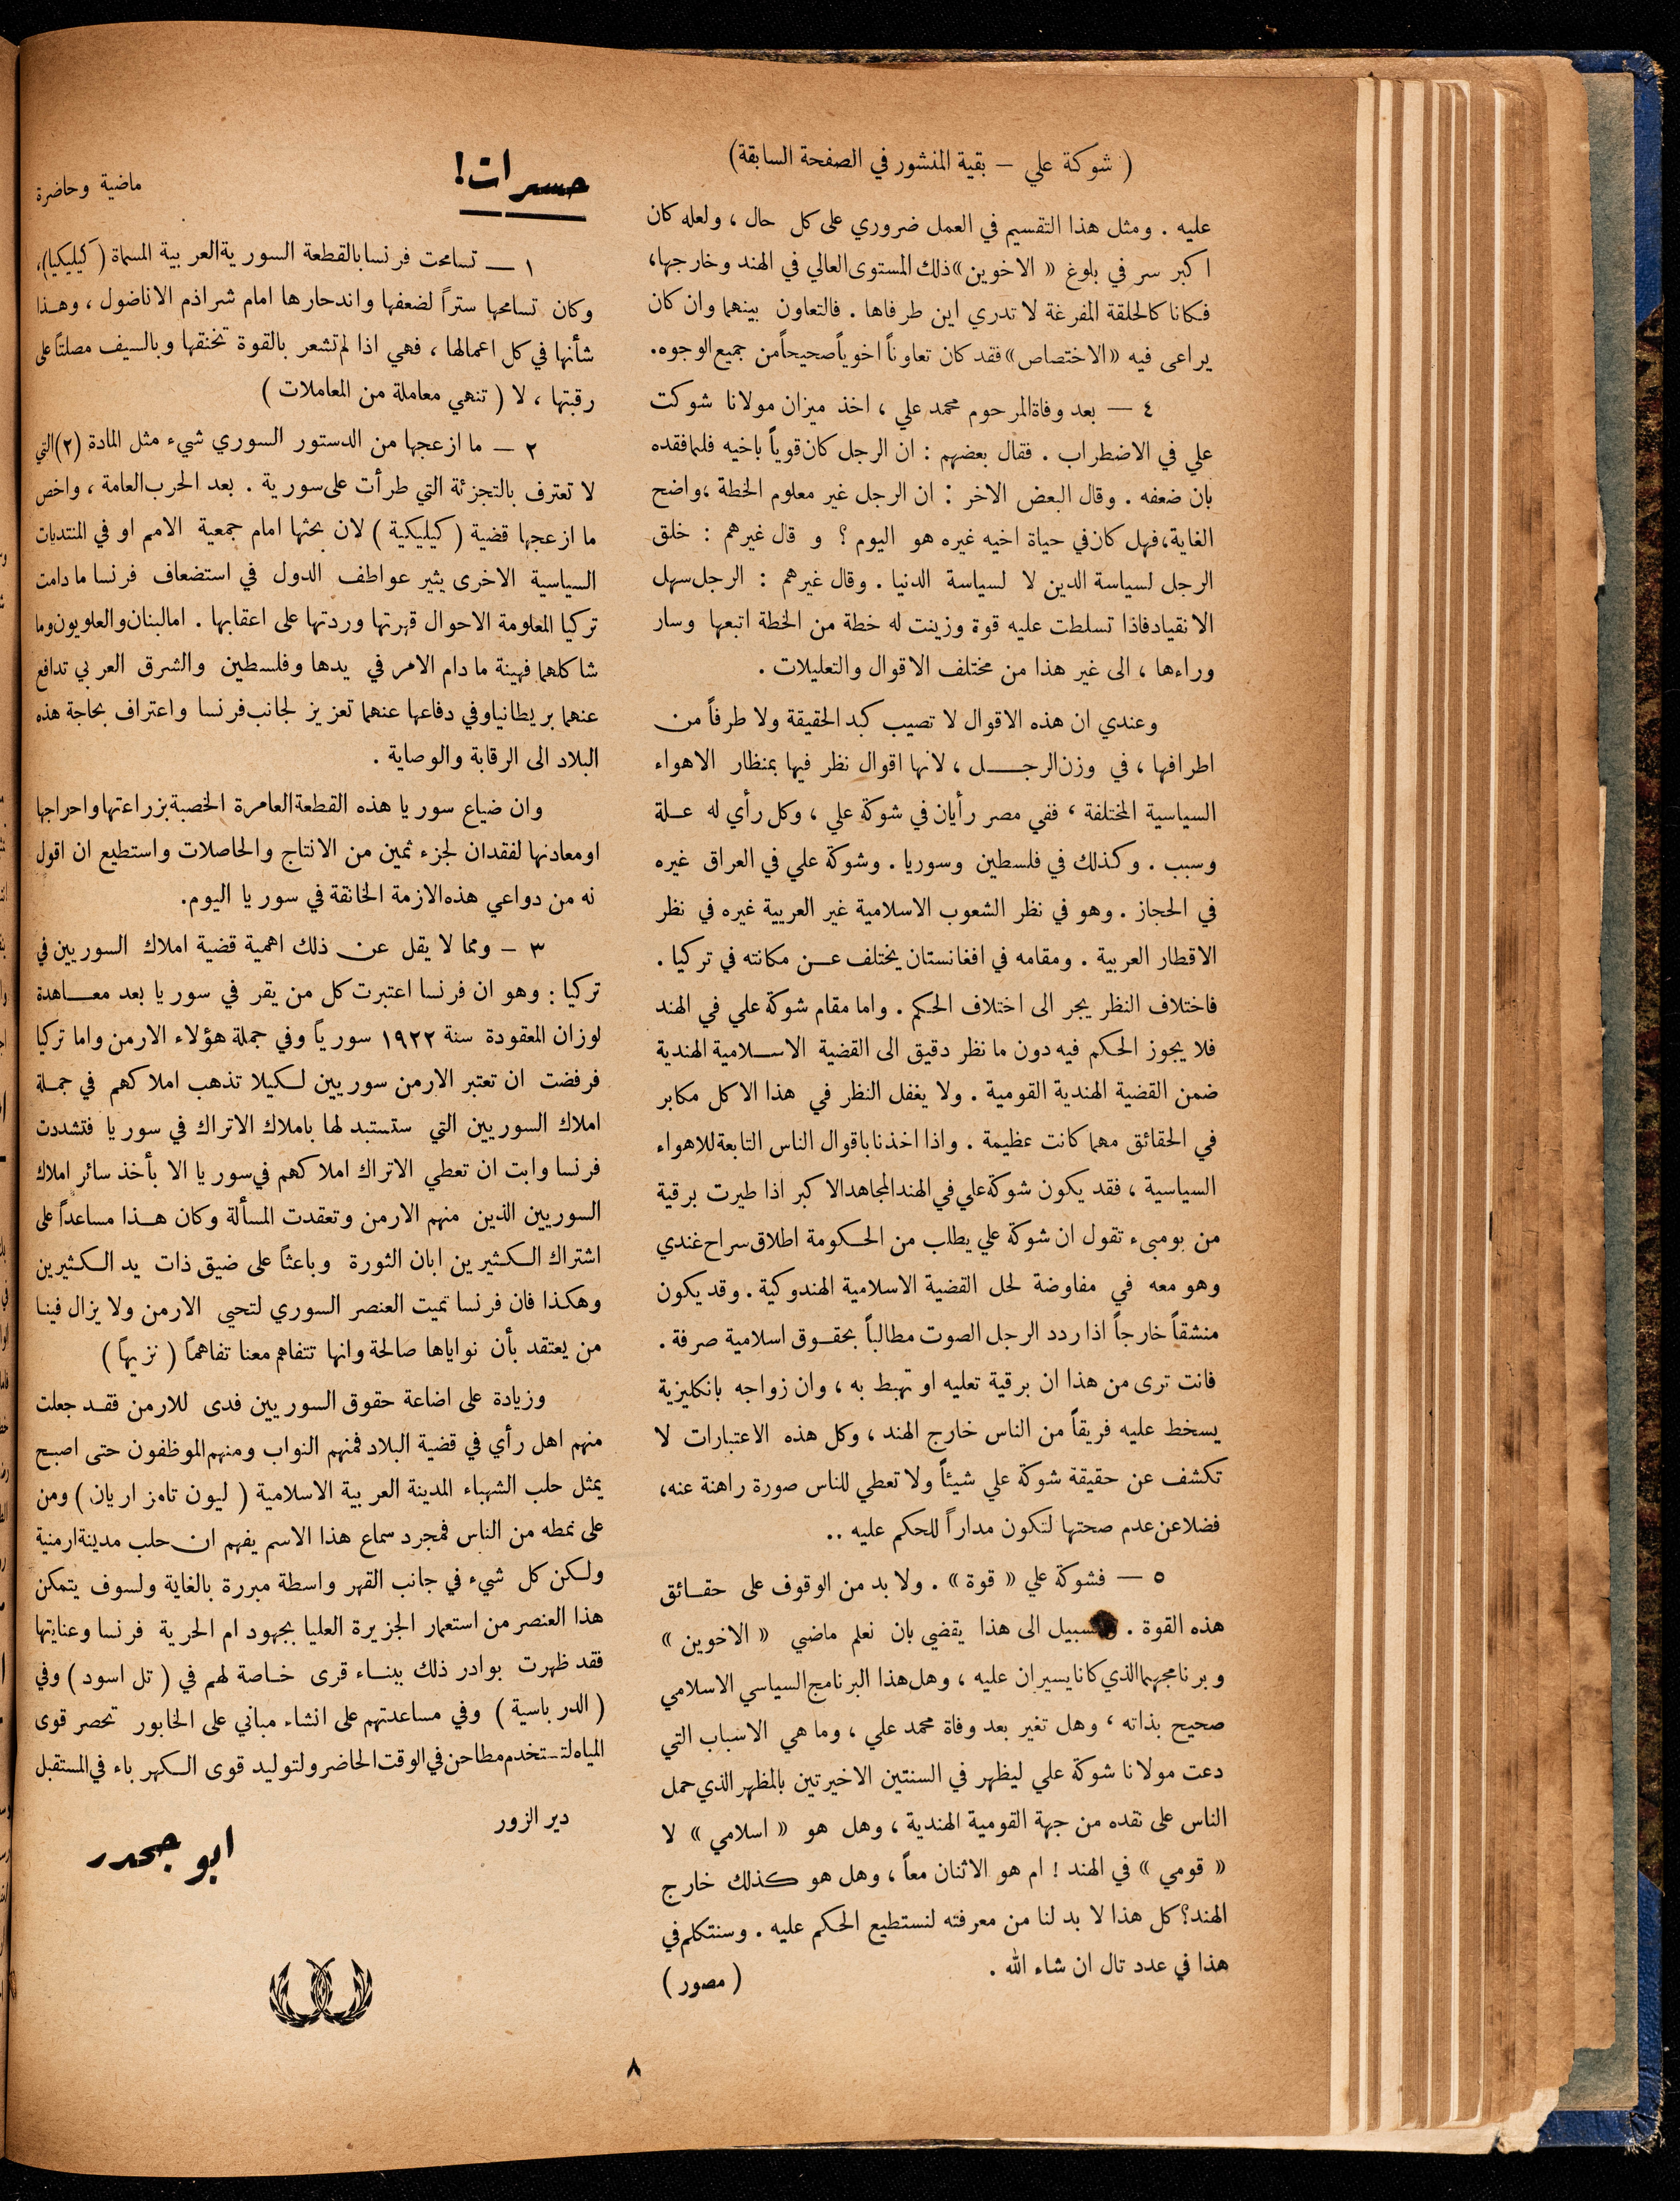 ( شوكة علي – بقية المنشور في الصفحة السابقة)
عليه . ومثل هذا التقسيم في العمل ضروري على كل حال ، ولعله كان
اكبر سر في بلوغ « الاخوين » ذلك المستوى العالي في الهند وخارجها،
فكانا كالحلقة المفرغة لا تدري اين طرفاها . فالتعاون بينهما وان كان
يراعى فيه «الاختصاص» فقد كان تعاوناً اخوياً صحيحاً من جميع الوجوه.
٤ – بعد وفاة المرحوم محمد علي ، اخذ ميزان مولانا شوكت
علي في الاضطراب . فقال بعضهم : ان الرجل كان قوياً باخيه فلما فقده
بان ضعفه . وقال البعض الاخر : ان الرجل غير معلوم الخطة ،واضح
الغاية،فهل كان في حياة اخيه غيره هو اليوم ؟ و قال غيرهم : خلق
الرجل لسياسة الدين لا لسياسة الدنيا . وقال غيرهم : الرجل سهل
الانقياد فاذا تسلطت عليه قوة وزينت له خطة من الخطة اتبعها وسار
وراءها ، الى غير هذا من مختلف الاقوال والتعليلات .
وعندي ان هذه الاقوال لا تصيب كبد الحقيقة ولا طرفاً من
اطرافها ، في وزن الرجل ، لانها اقوال نظر فيها بمنظار الاهواء
السياسية المختلفة ، ففي مصر رأيان في شوكة علي ، وكل رأي له علة
وسبب . وكذلك في فلسطين وسوريا . وشوكة علي في العراق غيره
في الحجاز . وهو في نظر الشعوب الاسلامية غير العربية غيره في نظر
الاقطار العربية . ومقامه في افغانستان يختلف عن مكانته في تركيا .
فاختلاف النظر يجر الى اختلاف الحكم . واما مقام شوكة علي في الهند
فلا يجوز الحكم فيه دون ما نظر دقيق الى القضية الاسلامية الهندية
ضمن القضية الهندية القومية . ولا يغفل النظر في هذا الا كل مكابر
في الحقائق مهما كانت عظيمة . واذا اخذنا باقوال الناس التابعة للاهواء
السياسية ، فقد يكون شوكة علي في الهند المجاهد الاكبر اذا طيرت برقية
من بومبىء تقول ان شوكة علي يطلب من الحكومة اطلاق سراح غندي
وهو معه في مفاوضة لحل القضية الاسلامية الهندوكية . وقد يكون
منشقاً خارجاً اذا ردد الرجل الصوت مطالباً بحقوق اسلامية صرفة .
فانت ترى من هذا ان برقية تعليه او تهبط به ، وان زواجه بانكليزية
يسخط عليه فريقاً من الناس خارج الهند ، وكل هذه الاعتبارات لا
تكشف عن حقيقة شوكة علي شيئاً ولا تعطي للناس صورة راهنة عنه،
فضلا عن عدم صحتها لتكون مداراً للحكم عليه ..
٥ – فشوكة علي « قوة » . ولا بد من الوقوف على حقائق
هذه القوة . الى هذا يقضي بان نعلم ماضي « الاخوين »
وبرنامجهما الذي كانا يسيران عليه ، وهل هذا البرنامج السياسي الاسلامي
صحيح بذاته ، وهل تغير بعد وفاة محمد علي ، وما هي الاسباب التي
دعت مولانا شوكة علي ليظهر في السنتين الاخيرتين بالمظهر الذي حمل
الناس على نقده من جهة القومية الهندية ، وهل هو « اسلامي » لا
« قومي » في الهند ! ام هو الاثنان معاً ، وهل هو كذلك خارج
الهند؟ كل هذا لا بد لنا من معرفته لنستطيع الحكم عليه . وسنتكلم في
هذا في عدد تال ان شاء الله .
( مصور )
حسرات!
ماضية وحاضرة
١ — تسامحت فرنسا بالقطعة السورية العربية المسماة ( كيليكيا)،
وكان تسامحها ستراً لضعفها واندحارها امام شراذم الاناضول ، وهذا
شأنها في كل اعمالها ، فهي اذا لم تشعر بالقوة تخنقها وبالسيف مصلتاً على
رقبتها ، لا ( تنهي معاملة من المعاملات )
٢ – ما ازعجها من الدستور السوري شيء مثل المادة (٢) التي
لا تعترف بالتجزئة التي طرأت على سورية . بعد الحرب العامة ، واخص
ما ازعجها قضية ( كيليكية ) لان بحثها امام جمعية الامم او في المنتديات
السياسية الاخرى يثير عواطف الدول في استضعاف فرنسا ما دامت
تركيا المعلومة الاحوال قهرتها وردتها على اعقابها . اما لبنان والعلويون وما
شاكلهما فهينة ما دام الامر في يدها وفلسطين والشرق العربي تدافع
عنهما بريطانيا وفي دفاعها عنهما تعزيز لجانب فرنسا واعتراف بحاجة هذه
البلاد الى الرقابة والوصاية .
وان ضياع سوريا هذه القطعة العامرة الخصبة بزراعتها واحراجها
اومعادنها لفقدان لجزء ثمين من الانتاج والحاصلات واستطيع ان اقول
نه من دواعي هذه الازمة الخانقة في سوريا اليوم.
٣ – ومما لا يقل عن ذلك اهمية قضية املاك السوريين في
تركيا : وهو ان فرنسا اعتبرت كل من يقر في سوريا بعد معاهدة
لوزان المعقودة سنة ١٩٢٢ سورياً وفي جملة هؤلاء الارمن واما تركيا
فرفضت ان تعتبر الارمن سوريين لكيلا تذهب املاكهم في جملة
املاك السوريين التي ستستبد لها باملاك الاتراك في سوريا فتشددت
فرنسا وابت ان تعطي الاتراك املاكهم في سوريا الا بأخذ سائر املاك
السوريين الذين منهم الارمن وتعقدت المسألة وكان هذا مساعداً على
اشتراك الكثيرين ابان الثورة وباعثاً على ضيق ذات يد الكثيرين
وهكذا فان فرنسا تميت العنصر السوري لتحيي الارمن ولا يزال فينا
من يعتقد بأن نواياها صالحة وانها تتفاهم معنا تفاهماً ( نزيهاً )
وزيادة على اضاعة حقوق السوريين فدى للارمن فقد جعلت
منهم اهل رأي في قضية البلاد فمنهم النواب ومنهم الموظفون حتى اصبح
يمثل حلب الشهباء المدينة العربية الاسلامية ( ليون تامز اريان ) ومن
على نمطه من الناس فمجرد سماع هذا الاسم يفهم ان حلب مدينة ارمنية
ولكن كل شيء في جانب القهر واسطة مبررة بالغاية ولسوف يتمكن
هذا العنصر من استعمار الجزيرة العليا بجهود ام الحرية فرنسا وعنايتها
فقد ظهرت بوادر ذلك ببناء قرى خاصة لهم في ( تل اسود ) وفي
( الدرباسية ) وفي مساعدتهم على انشاء مباني على الخابور تحصر قوى
المياه لتستخدم مطاحن في الوقت الحاضر ولتوليد قوى الكهرباء في المستقبل
دير الزور
ابو جحدر
٨